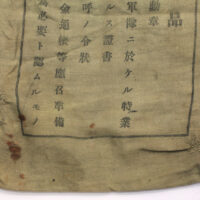 品
勳章
軍隊ニ於ケル特業
ルス證書
呼ノ令狀
金通帳等應召準備
必要ト認ムルモノ